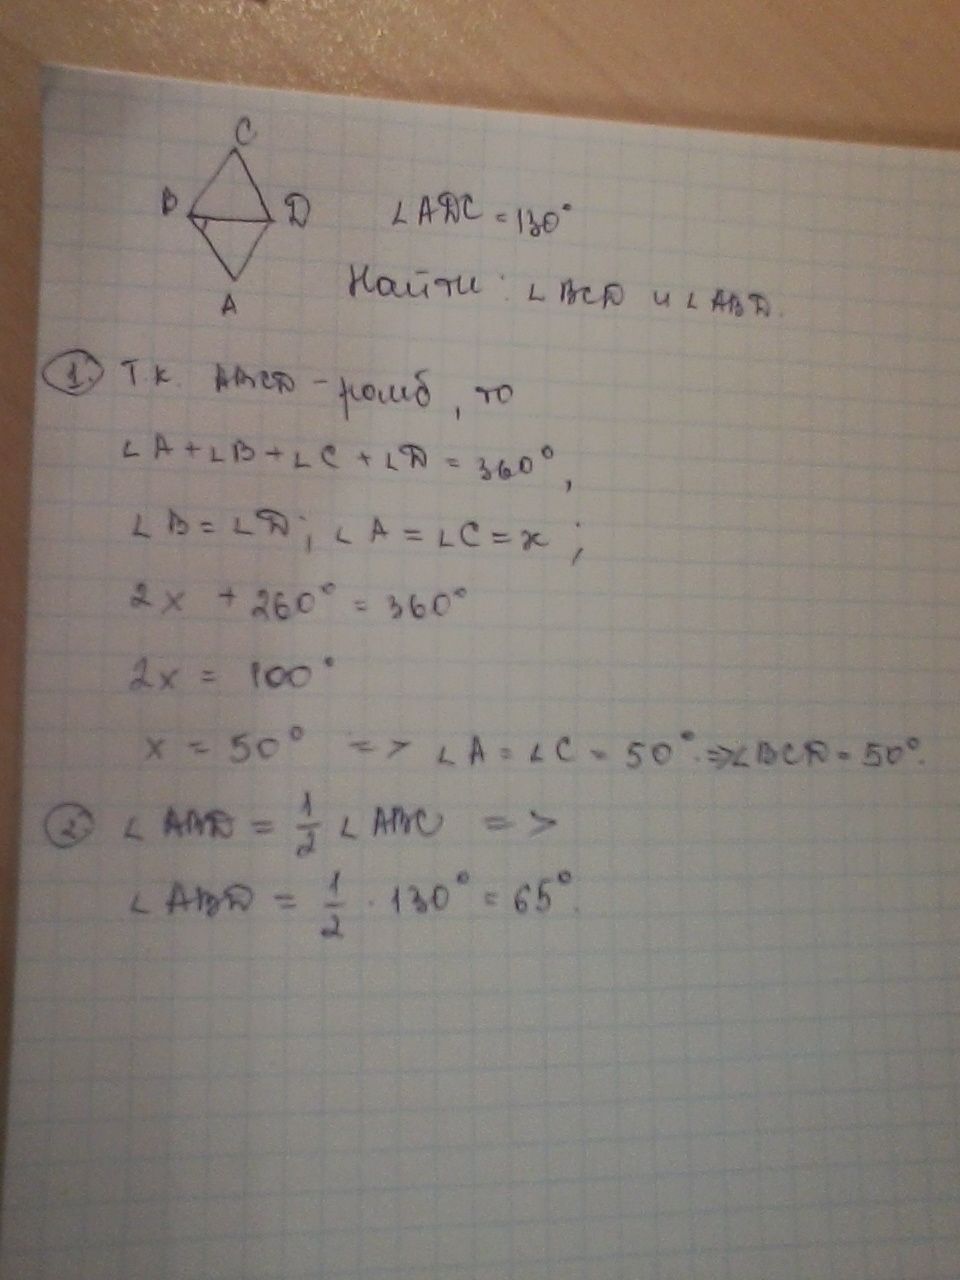 C
B D ∠ADC = 130°
A Найти: ∠BCD и ∠ABD.
1. Т.к. ABCD - ромб, то
∠A + ∠B + ∠C + ∠D = 360°,
∠B = ∠D; ∠A = ∠C = x;
2x + 260° = 360°
2x = 100°
x = 50° => ∠A = ∠C = 50°. => ∠BCD = 50°.
2. ∠ABD = 1/2 ∠ABC =>
∠ABD = 1/2 · 130° = 65°.